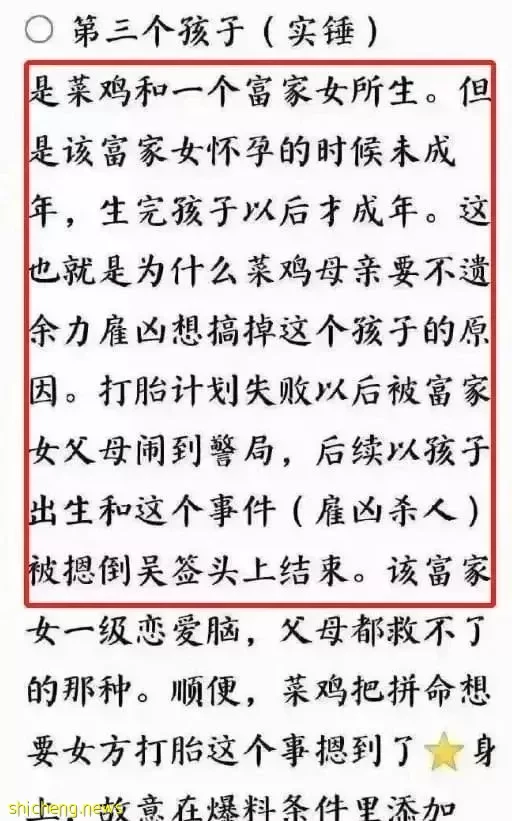 ○ 第三个孩子（实锤）
是菜鸡和一个富家女所生。但
是该富家女怀孕的时候未成
年，生完孩子以后才成年。这
也就是为什么菜鸡母亲要不遗
余力雇凶想搞掉这个孩子的原
因。打胎计划失败以后被富家
女父母闹到警局，后续以孩子
出生和这个事件（雇凶杀人）
被摁倒吴签头上结束。该富家
女一级恋爱脑，父母都救不了
的那种。顺便，菜鸡把拼命想
要女方打胎这个事摁到了⭐身
上，故意在爆料条件里添加
shicheng.news